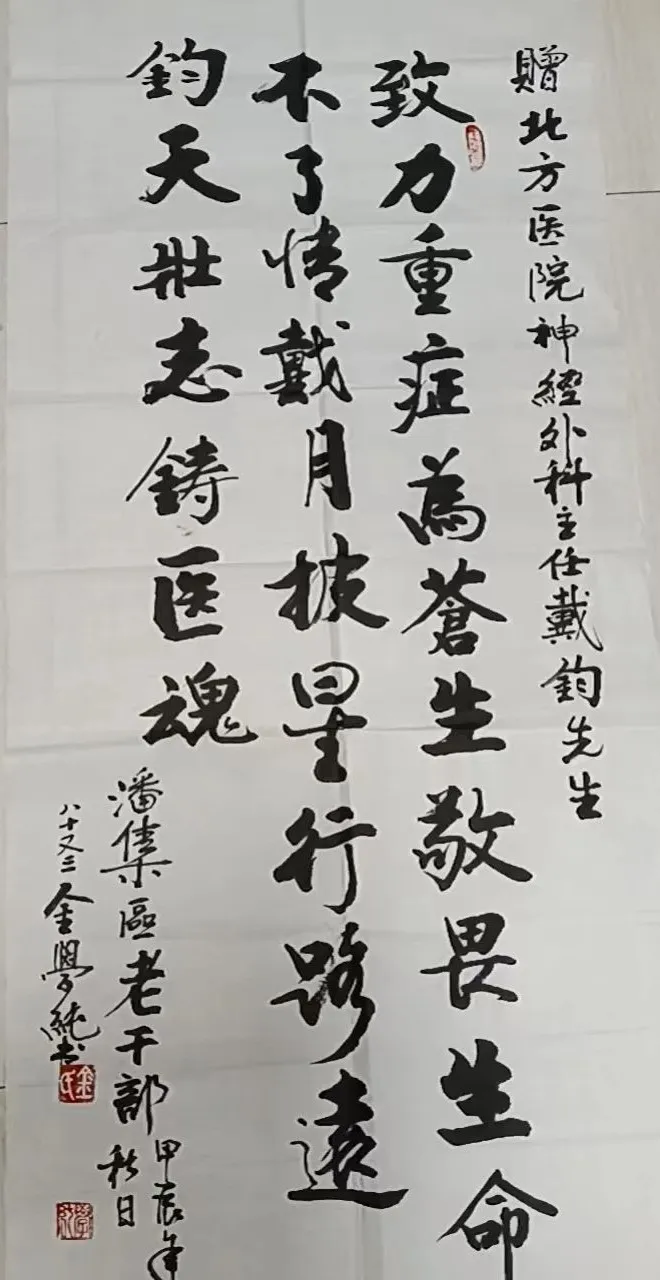 贈北方医院神經外科主任戴鈞先生
致力重症為蒼生敬畏生命
不了情戴月披星行路遠
鈞天壯志鑄医魂
潘集區老干部
甲辰年
秋日
八十又三金學純书
金氏